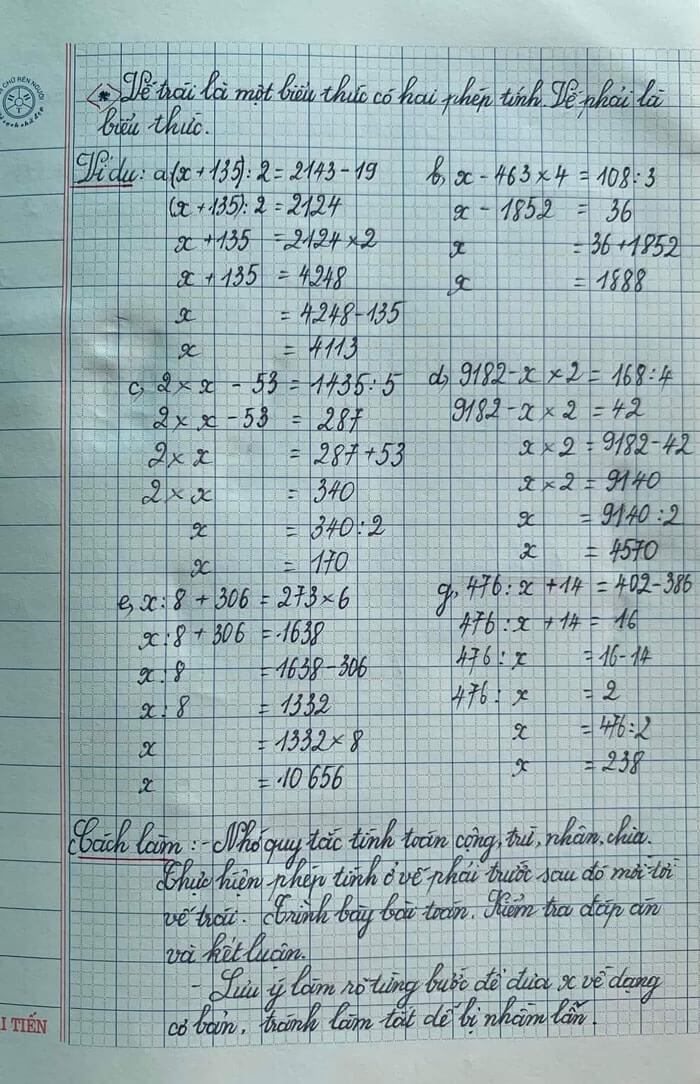 Vế trái là một biểu thức có hai phép tính. Vế phải là
biểu thức.
Ví dụ: a, (x + 135) : 2 = 2143 - 19
(x + 135) : 2 = 2124
x + 135 = 2124 × 2
x + 135 = 4248
x = 4248 - 135
x = 4113
b, x - 463 × 4 = 108 : 3
x - 1852 = 36
x = 36 + 1852
x = 1888
c, 2 × x - 53 = 1435 : 5
2 × x - 53 = 287
2 × x = 287 + 53
2 × x = 340
x = 340 : 2
x = 170
d, 9182 - x × 2 = 168 : 4
9182 - x × 2 = 42
x × 2 = 9182 - 42
x × 2 = 9140
x = 9140 : 2
x = 4570
e, x : 8 + 306 = 273 × 6
x : 8 + 306 = 1638
x : 8 = 1638 - 306
x : 8 = 1332
x = 1332 × 8
x = 10 656
g, 476 : x + 14 = 402 - 386
476 : x + 14 = 16
476 : x = 16 - 14
476 : x = 2
x = 476 : 2
x = 238
Cách làm : - Nhớ quy tắc tính toán cộng, trừ, nhân, chia.
Thực hiện phép tính ở vế phải trước sau đó mới tới
vế trái. Trình bày bài toán. Kiểm tra đáp án
và kết luận.
- Lưu ý làm rõ từng bước để đưa x về dạng
cơ bản, tránh làm tắt dễ bị nhầm lẫn.
I TIẾN